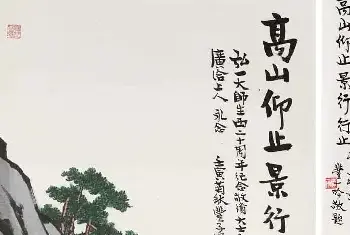 高山仰止景行行止
豐子愷敬題
高山仰止景行
弘一大師生西二十周年紀念敬
廣洽上人 永念
壬寅菊秋豐子